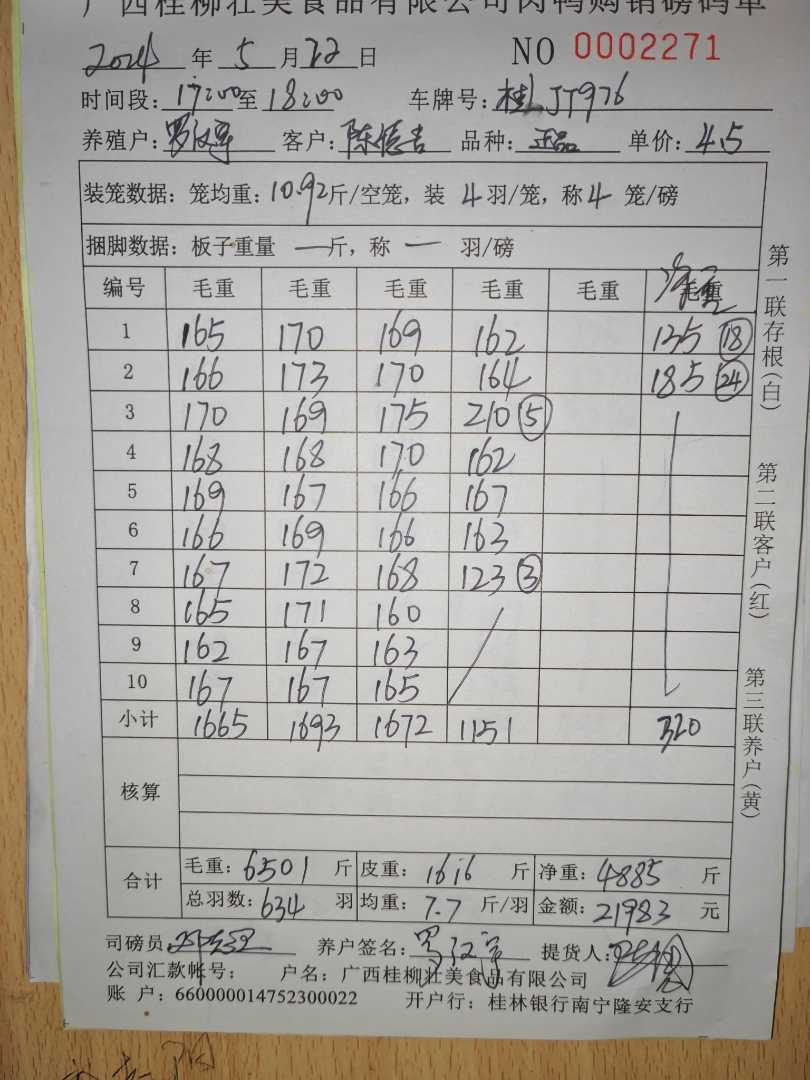 广西桂柳壮美食品有限公司肉鸭购销磅码单
2024 年 5 月 22 日 NO 0002271
时间段: 17:00 至 18:00 车牌号: 桂 JT976
养殖户: 罗汉军 客户: 陈德吉 品种: 正品 单价: 4.5
装笼数据: 笼均重: 10.92 斤/空笼, 装 4 羽/笼, 称 4 笼/磅
捆脚数据: 板子重量 一 斤, 称 一 羽/磅
编号 毛重 毛重 毛重 毛重 毛重 毛重
1 165 170 169 162 135 (18)
2 166 173 170 164 185 (24)
3 170 169 175 210 (5)
4 168 168 170 162
5 169 167 166 167
6 166 169 166 163
7 167 172 168 123 (3)
8 165 171 160
9 162 167 163
10 167 167 165
小计 1665 1693 1672 1151 320
核算
合计 毛重: 6501 斤 皮重: 1616 斤 净重: 4885 斤
总羽数: 634 羽 均重: 7.7 斤/羽 金额: 21983 元
司磅员: 养户签名: 罗汉军 提货人:
公司汇款帐号: 户名: 广西桂柳壮美食品有限公司
账 户: 660000014752300022 开户行: 桂林银行南宁隆安支行
第一联存根(白)
第二联客户(红)
第三联养户(黄)